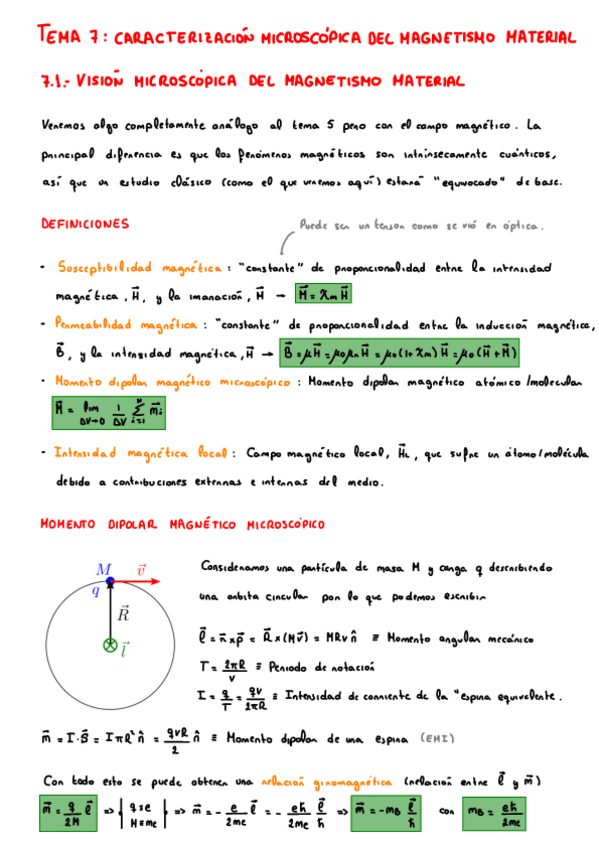 TEMA 7: CARACTERIZACIÓN MICROSCÓPICA DEL MAGNETISMO MATERIAL
7.1.- VISIÓN MICROSCÓPICA DEL MAGNETISMO MATERIAL
Veremos algo completamente análogo al tema 5 pero con el campo magnético. La
principal diferencia es que los fenómenos magnéticos son intrínsecamente cuánticos,
así que un estudio clásico (como el que veremos aquí) estará "equivocado" de base.
DEFINICIONES
Puede ser un tensor como se vió en óptica.
- Susceptibilidad magnética : "constante" de proporcionalidad entre la intensidad
magnética, H⃗, y la imanación, M⃗ → M⃗ = χm H⃗
- Permeabilidad magnética : "constante" de proporcionalidad entre la inducción magnética,
B⃗, y la intensidad magnética, H⃗ → B⃗ = μH⃗ = μ0μrH⃗ = μ0(1+χm)H⃗ = μ0(H⃗+M⃗)
- Momento dipolar magnético microscópico : Momento dipolar magnético atómico/molecular
M⃗ = lim ΔV→0 1/ΔV Σ i=1 N m⃗i
- Intensidad magnética local : Campo magnético local, H⃗L, que sufre un átomo/molécula
debido a contribuciones externas e internas del medio.
MOMENTO DIPOLAR MAGNÉTICO MICROSCÓPICO
M v⃗
q
R⃗
l⃗
Consideramos una partícula de masa M y carga q describiendo
una orbita circular por lo que podemos escribir
ℓ⃗ = r⃗ x p⃗ = R⃗ x (Mv⃗) = MRv n̂ ≡ Momento angular mecánico
T = 2πR/v ≡ Periodo de rotación
I = q/T = qv/2πR ≡ Intensidad de corriente de la "espira equivalente.
m⃗ = I·S⃗ = IπR² n̂ = qvR/2 n̂ ≡ Momento dipolar de una espira (EMI)
Con todo esto se puede obtener una relación giromagnética (relación entre ℓ⃗ y m⃗)
m⃗ = q/2M ℓ⃗ => { q=e M=me } => m⃗ = - e/2me ℓ⃗ = - eħ/2me ℓ⃗/ħ => m⃗ = -mB ℓ⃗/ħ con mB = eħ/2me